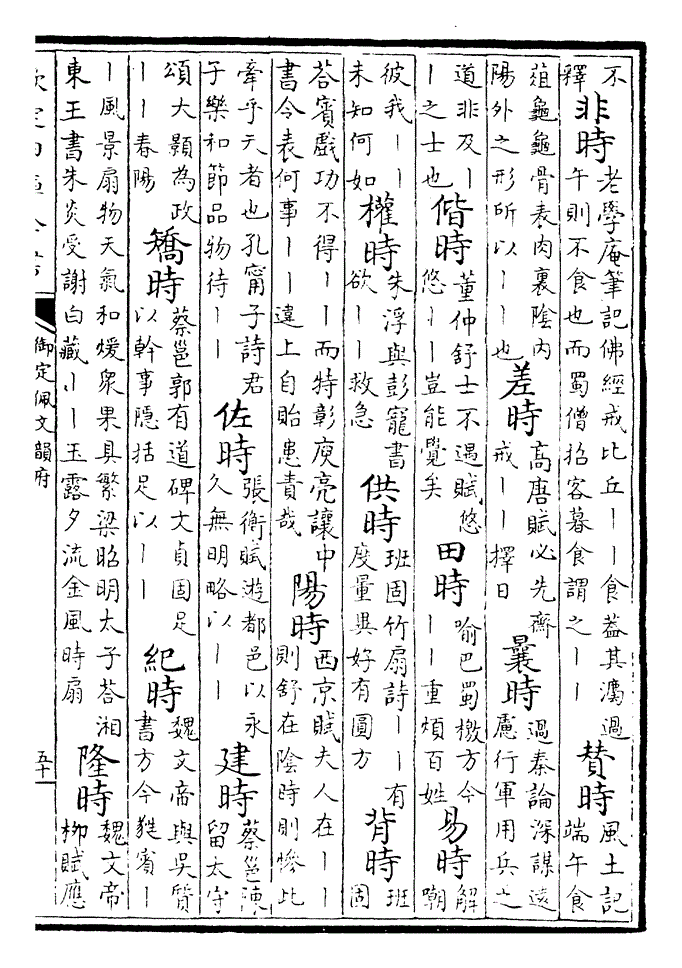 不
釋
非時
老學庵筆記佛經戒比丘丨丨食蓋其瀆過
午則不食也而蜀僧招客暮食謂之丨丨
贊時
風土記
端午食
葅龜龜骨表肉裏陰内
陽外之形所以丨丨也
差時
高唐賦必先齋
戒丨丨擇日
曩時
過秦論深謀遠
慮行軍用兵之
道非及丨
丨之士也
偕時
董仲舒士不遇賦悠
悠丨丨豈能覺矣
田時
喻巴蜀檄方今
丨丨重煩百姓
易時
解
嘲
彼我丨丨
未知何如
權時
朱浮與彭寵書
欲丨丨救急
供時
班固竹扇詩丨丨有
度量異好有圓方
背時
班
固
荅賓戲功不得丨丨而特彰庾亮讓中
書令表何事丨丨違上自貽患責哉
陽時
西京賦夫人在丨丨
則舒在陰時則慘比
牽乎天者也孔甯子詩君
子樂和節品物待丨丨
佐時
張衡賦遊都邑以永
久無明略以丨丨
建時
蔡邕陳
留太守
頌大顥為政
丨丨春陽
矯時
蔡邕郭有道碑文貞固足
以幹事隱括足以丨丨
紀時
魏文帝與吳質
書方今蕤賓丨
丨風景扇物天氣和煖衆果具繁梁昭明太子荅湘
東王書朱炎受謝白藏丨丨玉露夕流金風時扇
隆時
魏文帝
柳賦應
御定佩文韻府
五十